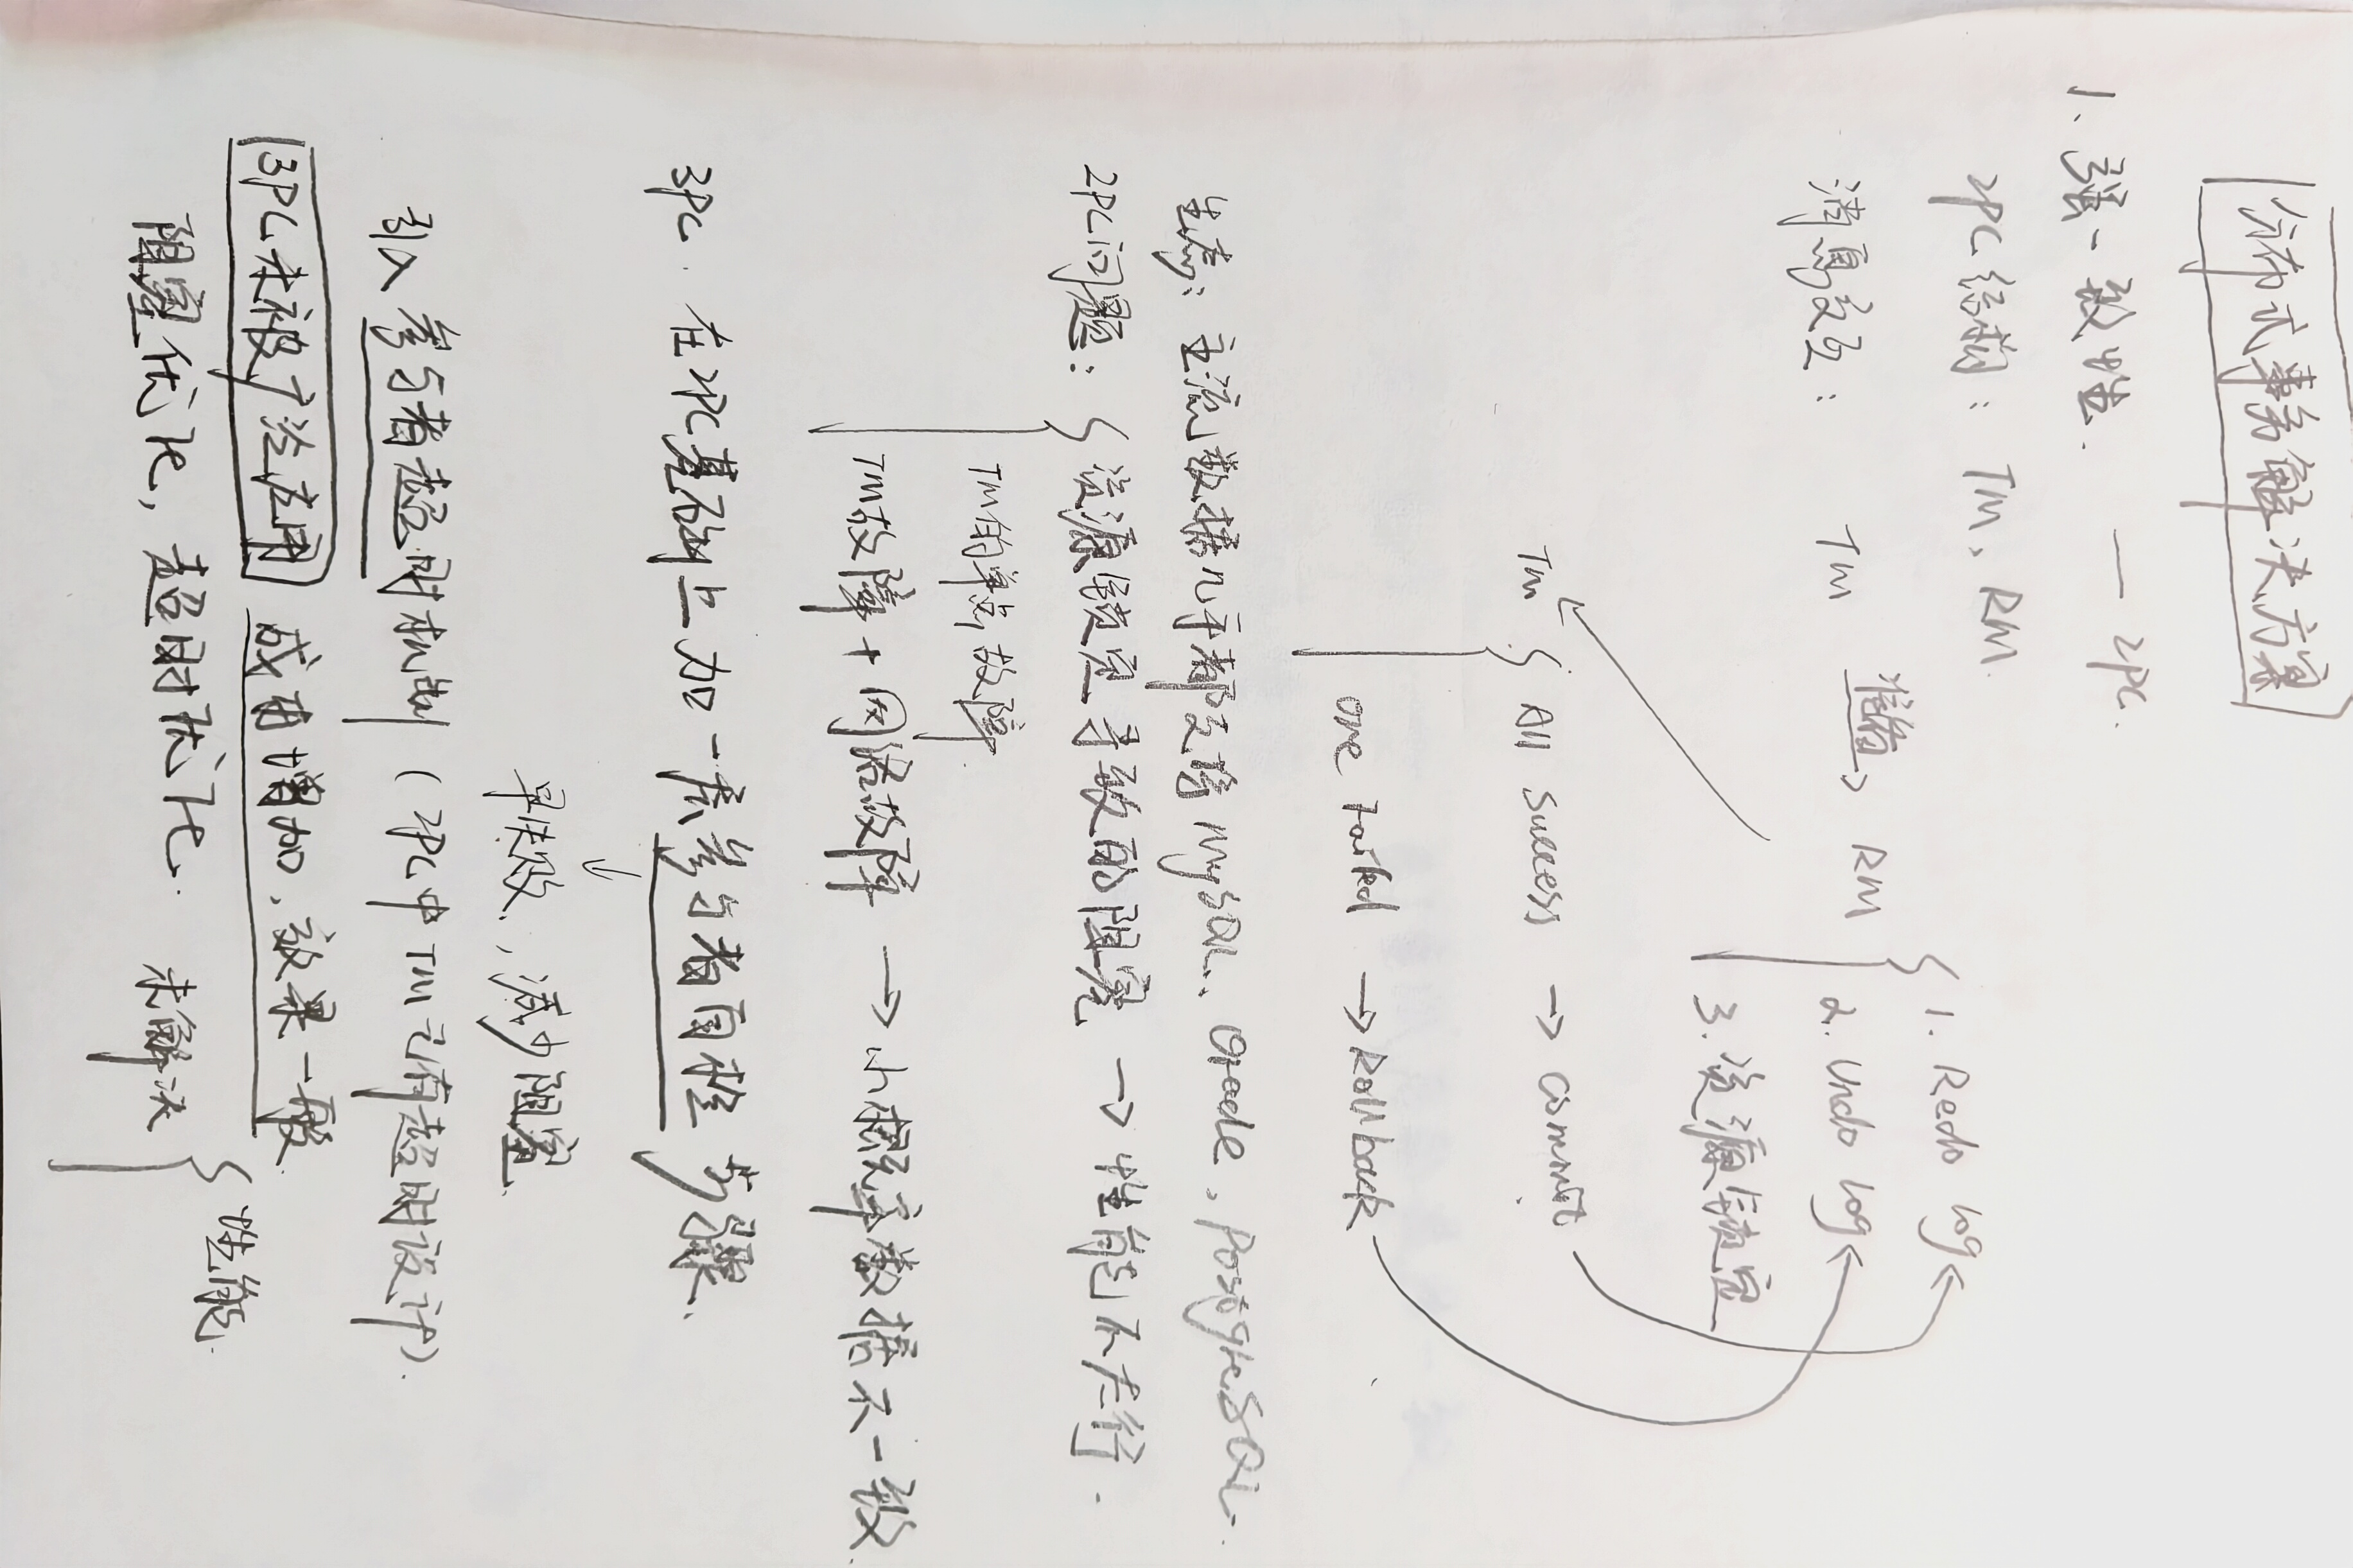 分布式事务解决方案
1、强一致性. — 2PC.
2PC结构: TM、RM.
消息交互: TM 准备→ RM
1. Redo log
2. Undo log
3. 资源锁定
TM { All success → commit
one Failed → Rollback
生态: 主流数据几乎都支持 MySQL、Oracle, PostgreSQL.
2PC问题: { 资源锁定导致的阻塞 → 性能不太行.
TM的单点故障.
TM故障 + 网络故障 → 小概率数据不一致.
3PC. 在2PC基础上加一层参与者自检步骤、
↓
早失败, 减少阻塞.
引入参与者超时机制 (2PC中TM已有超时设计).
3PC未被广泛应用 成本增加, 效果一般.
阻塞优化, 超时优化. 未解决 { 性能.